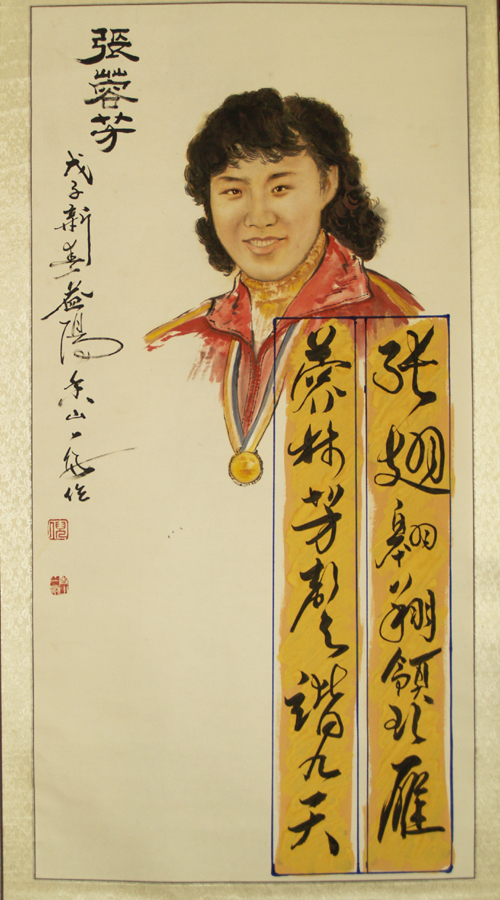 張蓉芳
戊子新春益陽山一作
张翅翱翔领头雁
蓉林芳谐九天